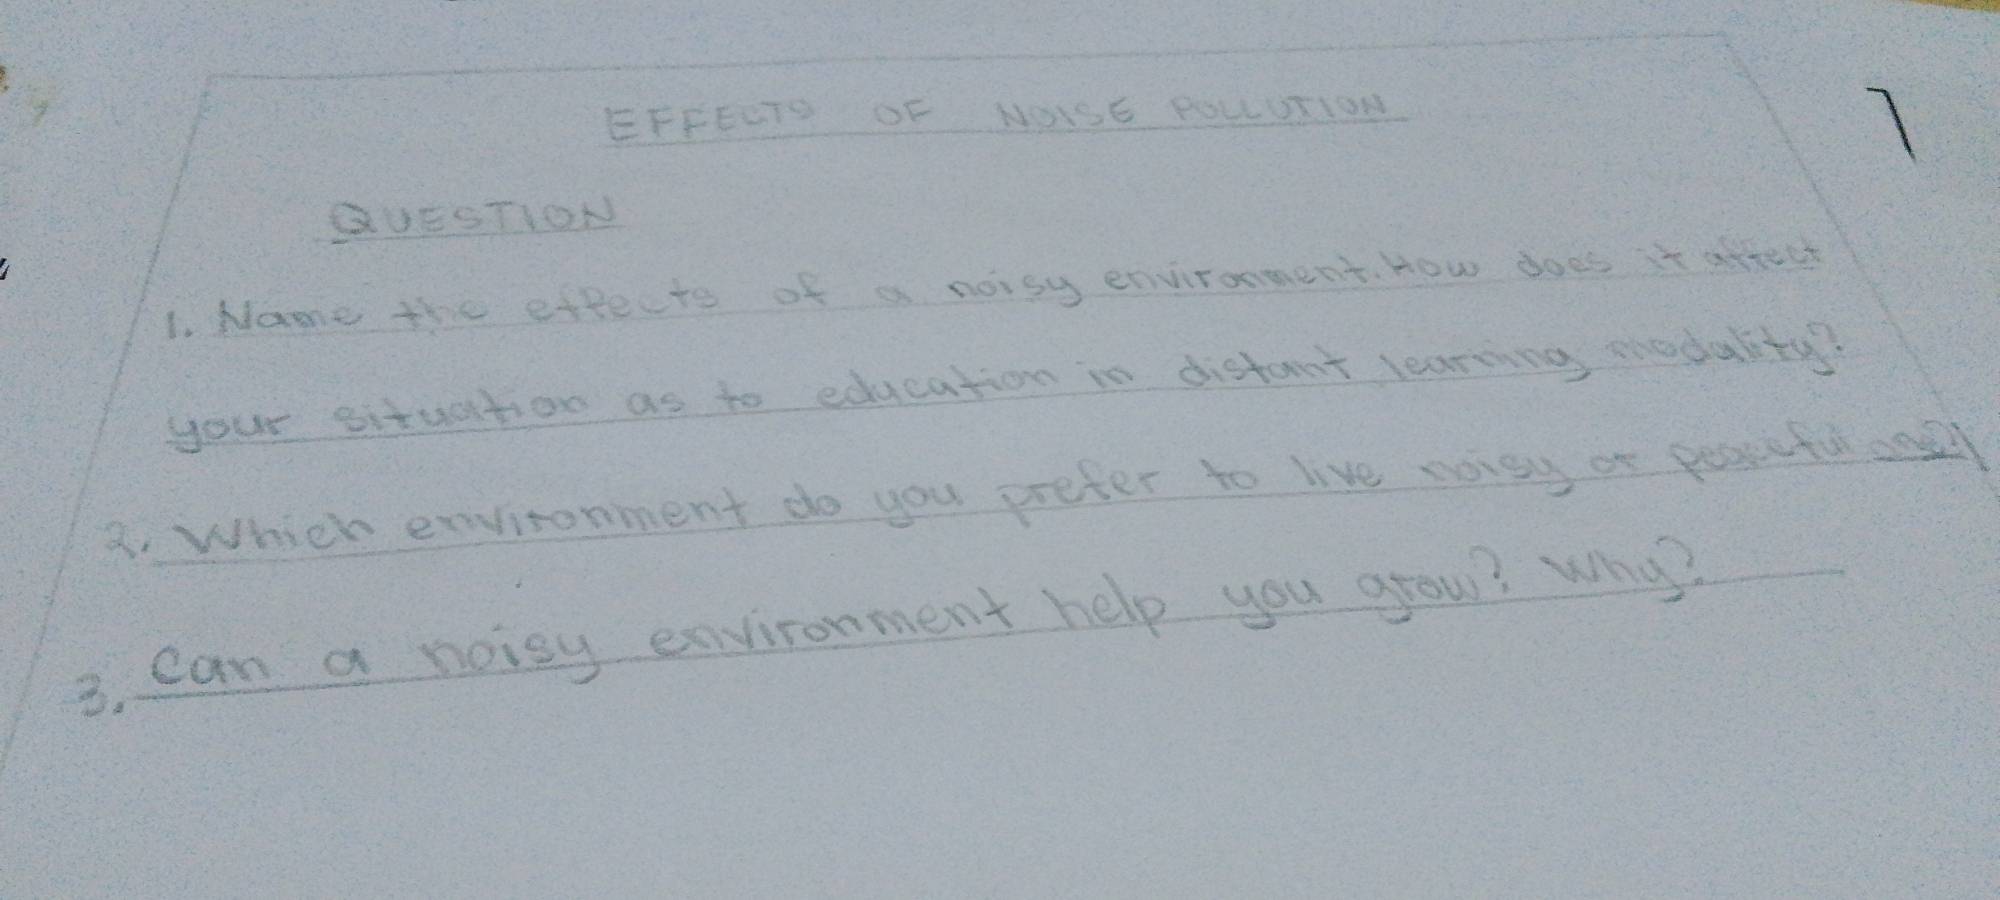 EFFECTS OF NOISE POLLUTION
QUESTION
1. Name the effects of a noisy environment. How does it affect
your situation as to education in distant learning modality?
2. Which environment do you prefer to live noisy or peaceful one?
3. Can a noisy environment help you grow? Why?